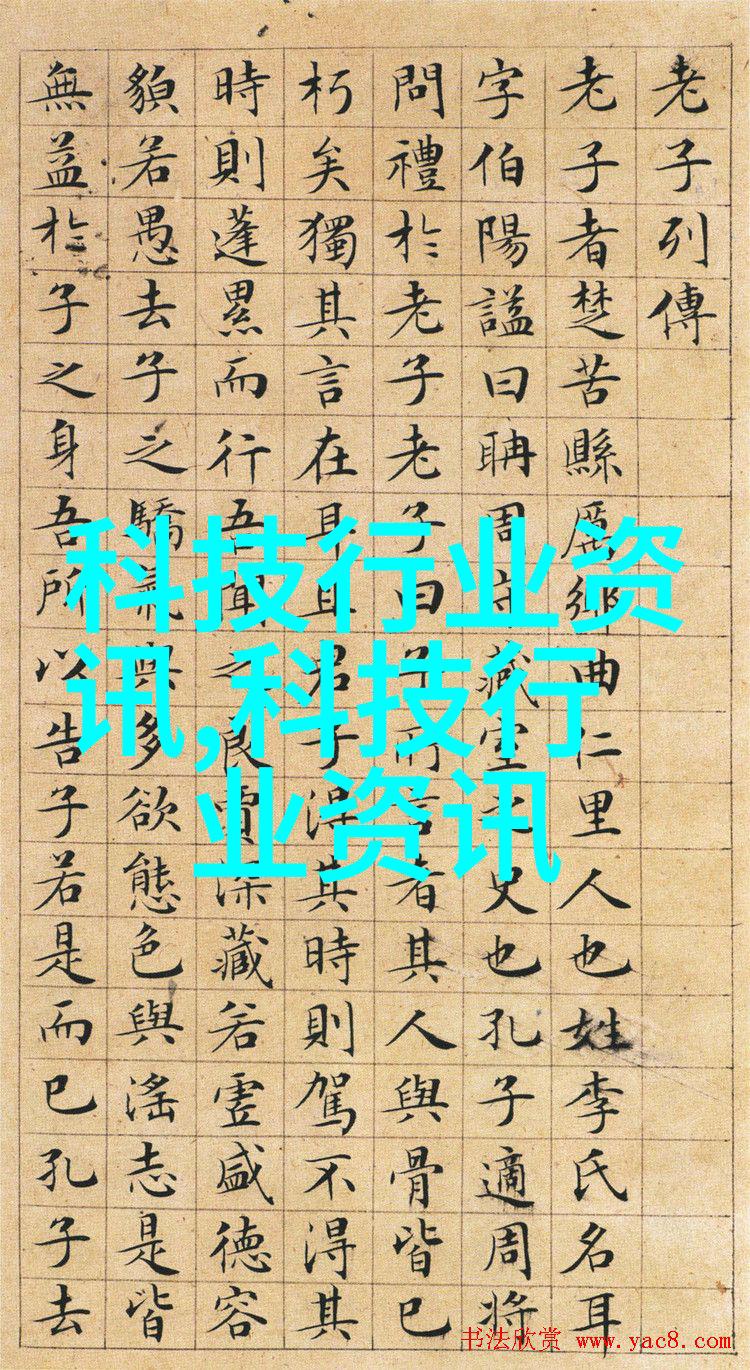 老子列傳
老子者楚苦縣厲鄉曲仁里人也姓李氏名耳
字伯陽謚曰聃周守藏室之史也孔子適周將
問禮於老子老子曰子所言者其人與骨皆已
朽矣獨其言在耳且君子得其時則駕不得其
時則蓬累而行吾聞之良賈深藏若虛盛德容
䫉若愚去子之驕氣與多欲態色與淫志是皆
無益於子之身吾所以告子若是而已孔子去
科技行业资
讯,科技行
业资讯
书法欣赏 www.yac8.com